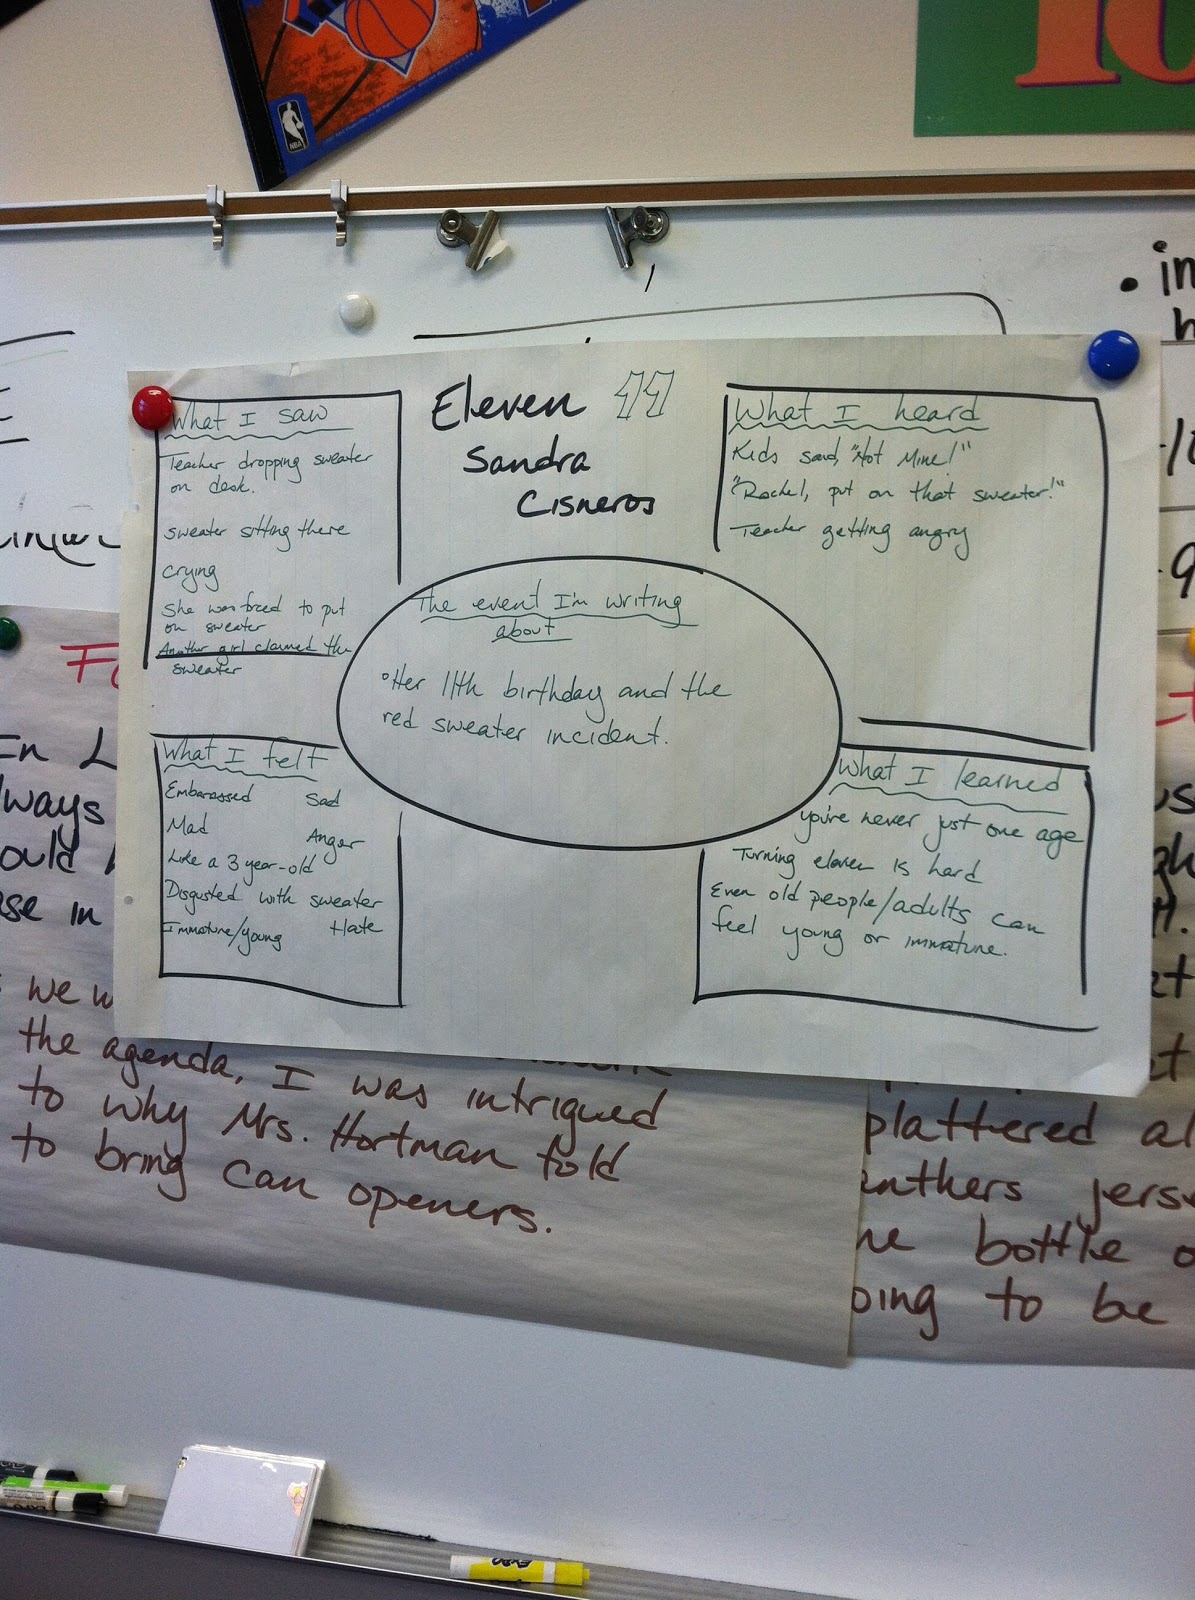 NBA
10
in
Eleven 11
Sandra
Cisneros
What I saw
Teacher dropping sweater
on desk.
sweater sitting there
crying
She was forced to put
on sweater
Another girl claimed the
sweater
What I heard
Kids said, "Not Mine!"
"Rachel, put on that sweater!"
Teacher getting angry
The event I'm writing
about
Her 11th birthday and the
red sweater incident.
What I felt
Embarassed Sad
Mad Anger
Like a 3 year-old
Disgusted with sweater
Immature/young Hate
What I learned
you're never just one age
Turning eleven is hard
Even old people/adults can
feel young or immature.
In L
lways
ould
se in
we w
the agenda, I was intrigued
to why Mrs. Hortman told
to bring can openers.
plattered al
anthers jers
bottle o
oing to be